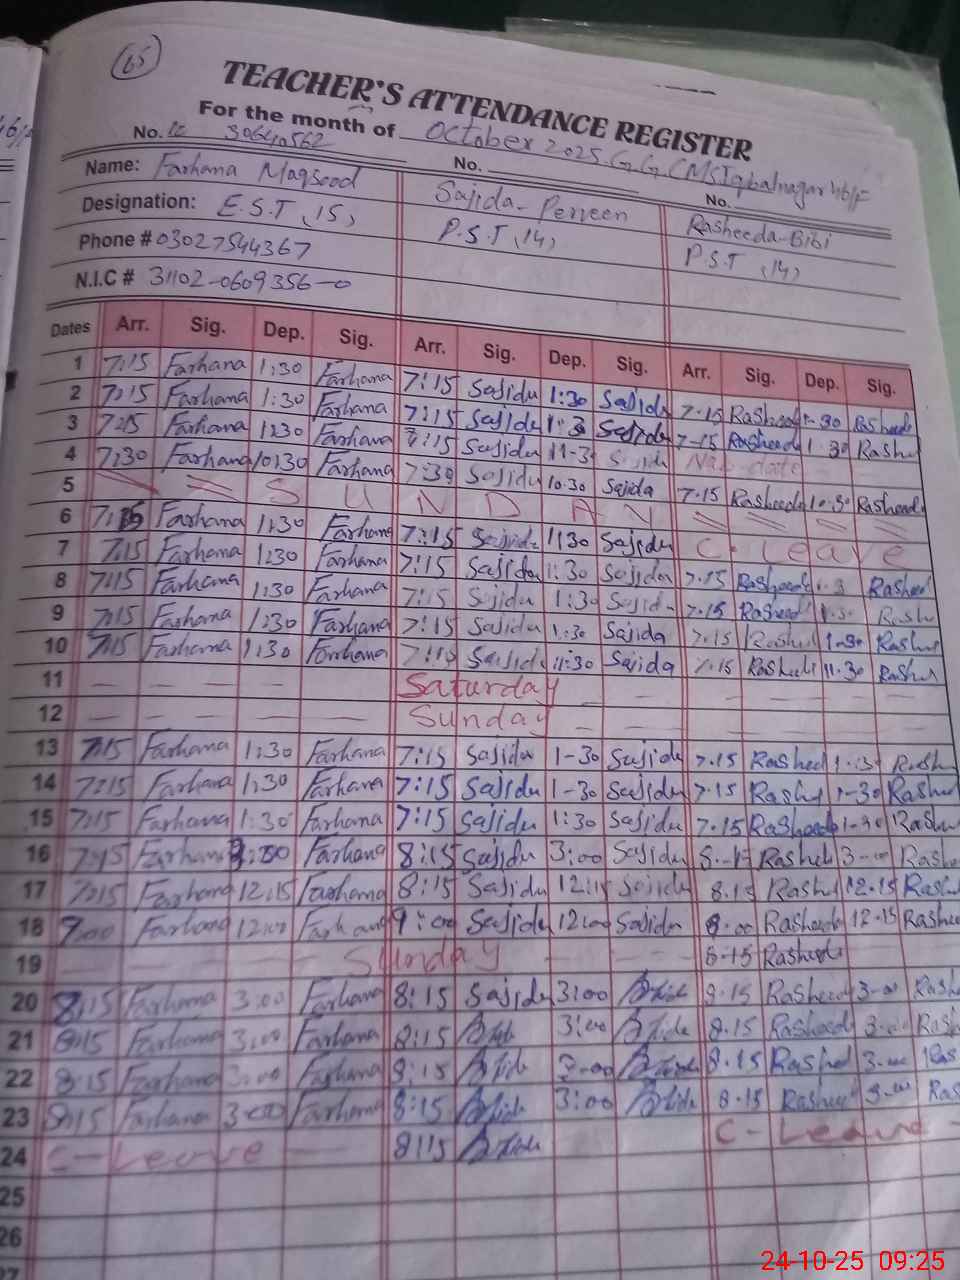 65
TEACHER'S ATTENDANCE REGISTER
For the month of October 2025 G.G.CMS Iqbalnagar
No. No. No.
Name: Farhana Maqsood Sajida-Perveen Rasheeda-Bibi
Designation: E.S.T (15) P.S.T (14) P.S.T (14)
Phone # 03027544367
N.I.C # 31102-0609356-0
Dates Arr. Sig. Dep. Sig. Arr. Sig. Dep. Sig. Arr. Sig. Dep. Sig.
1 7:15 Farhana 1:30 Farhana 7:15 Sajida 1:30 Sajida 7-15 Rasheeda 1-30 Rasheeda
2 7:15 Farhana 1:30 Farhana 7:15 Sajida Sajida 7-15 Rasheeda 1-30
3 7:15 Farhana 1:30 Farhana 7:15 Sajida
4 7:30 Farhana 10:30 Farhana 7:30 Sajida 10:30 Sajida 7.15 Rasheeda 10.30 Rasheeda
5 SUNDAY
6 7:15 Farhana 1:30 Farhana 7:15 Sajida 1:30 Sajida C. Leave
7 7:15 Farhana 1:30 Farhana 7:15 Sajida 1:30 Sajida 7.15 Rasheeda
8 7:15 Farhana 1:30 Farhana 7:15 Sajida 1:30 Sajida 7.15 Rasheed
9 7:15 Farhana 1:30 Farhana 7:15 Sajida 1:30 Sajida 7.15 1-30
10 7:15 Farhana 1:30 Farhana 7:15 Sajida 11:30 Sajida 7.15 11.30
11 Saturday
12 Sunday
13 7:15 Farhana 1:30 Farhana 7:15 Sajida 1-30 Sajida 7.15 Rasheed 1-30
14 7:15 Farhana 1:30 Farhana 7:15 Sajida 1-30 Sajida 7.15 1-30
15 7:15 Farhana 1:30 Farhana 7:15 Sajida 1:30 Sajida 7.15 Rasheeda 1-30
16 Farhana Farhana 8:15 Sajida 3:00 Sajida
17 7:15 Farhana 12:15 Farhana 8:15 Sajida 12:15 Sajida 8.15 12.15
18 9:00 Farhana 12:00 Farhana 9:00 Sajida 12:00 Sajida Rasheeda 12.15 Rasheed
19 Sunday 8-15 Rasheeda
20 8:15 Farhana 3:00 Farhana 8:15 Sajida 3:00 8.15 Rasheed
21 8:15 Farhana 3:00 Farhana 8:15 3:00 8.15 Rasheed
22 8:15 Farhana 3:00 Farhana 8:15 3:00 8.15 Rasheed
23 8:15 Farhana 3:00 Farhana 8:15 3:00 8.15 Rasheed
24 C-Leave 8:15 C-Leave
25
26
27
24-10-25 09:25